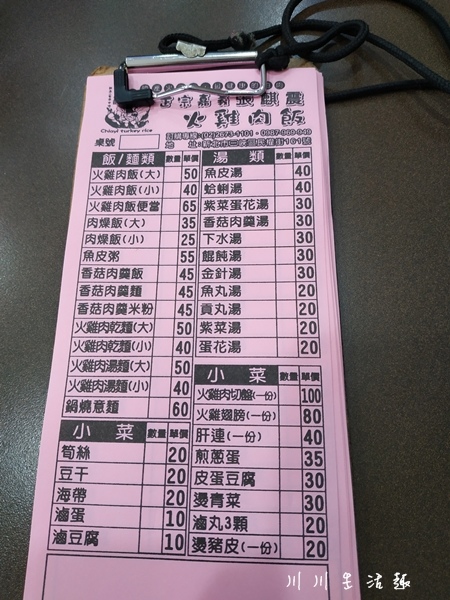 正宗嘉義張麒麟
火雞肉飯
Chiayi turkey rice
訂購專線:(02)2673-1101
桌號
飯/麵類 數量 單價
火雞肉飯(大) 50
火雞肉飯(小) 40
火雞肉飯便當 65
肉燥飯(大) 35
肉燥飯(小) 25
魚皮粥 55
香菇肉羹飯 45
香菇肉羹麵 45
香菇肉羹米粉 45
火雞肉乾麵(大) 50
火雞肉乾麵(小) 40
火雞肉湯麵(大) 50
火雞肉湯麵(小) 40
鍋燒意麵 60
小菜 數量 單價
筍絲 20
豆干 20
海帶 20
滷蛋 10
滷豆腐 10
湯類 數量 單價
魚皮湯 40
蛤蜊湯 40
紫菜蛋花湯 30
香菇肉羹湯 30
下水湯 30
餛飩湯 30
金針湯 30
魚丸湯 20
貢丸湯 20
紫菜湯 20
蛋花湯 20
小菜 數量 單價
火雞肉切盤(一份) 100
火雞翅膀(一份) 80
肝連(一份) 40
煎蔥蛋 35
皮蛋豆腐 30
燙青菜 30
滷丸3顆 20
燙豬皮(一份) 20
川川生活趣